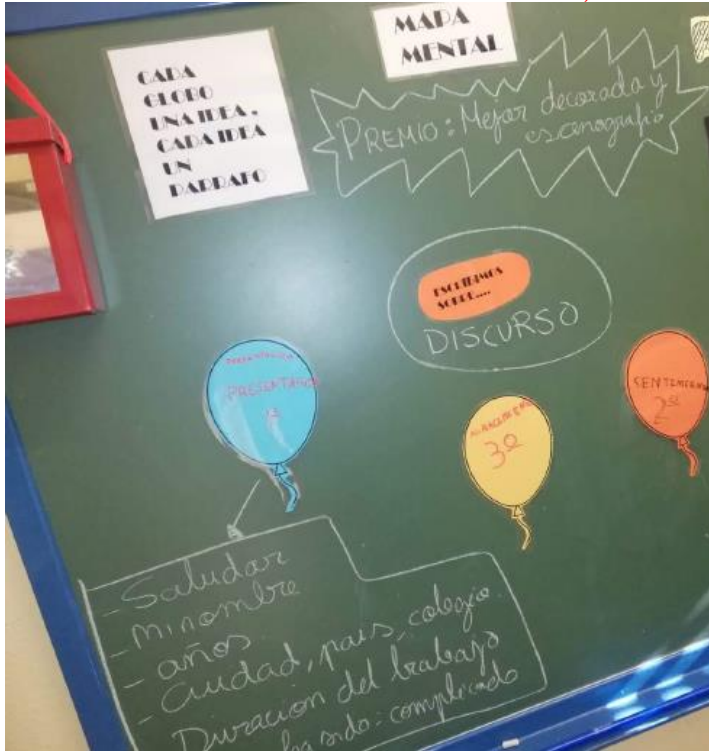 CADA
GLOBO
UNA IDEA.
CADA IDEA
UN
PARRAFO
MAPA
MENTAL
PREMIO: Mejor decorada y
escenografia
ESCRIBIMOS
SOBRE....
DISCURSO
PRESENTACION
1º
3º
2º
- Saludar
- Mi nombre
- años
- Ciudad, pais, colegio.
Duracion del trabajo
ha sido: complicado